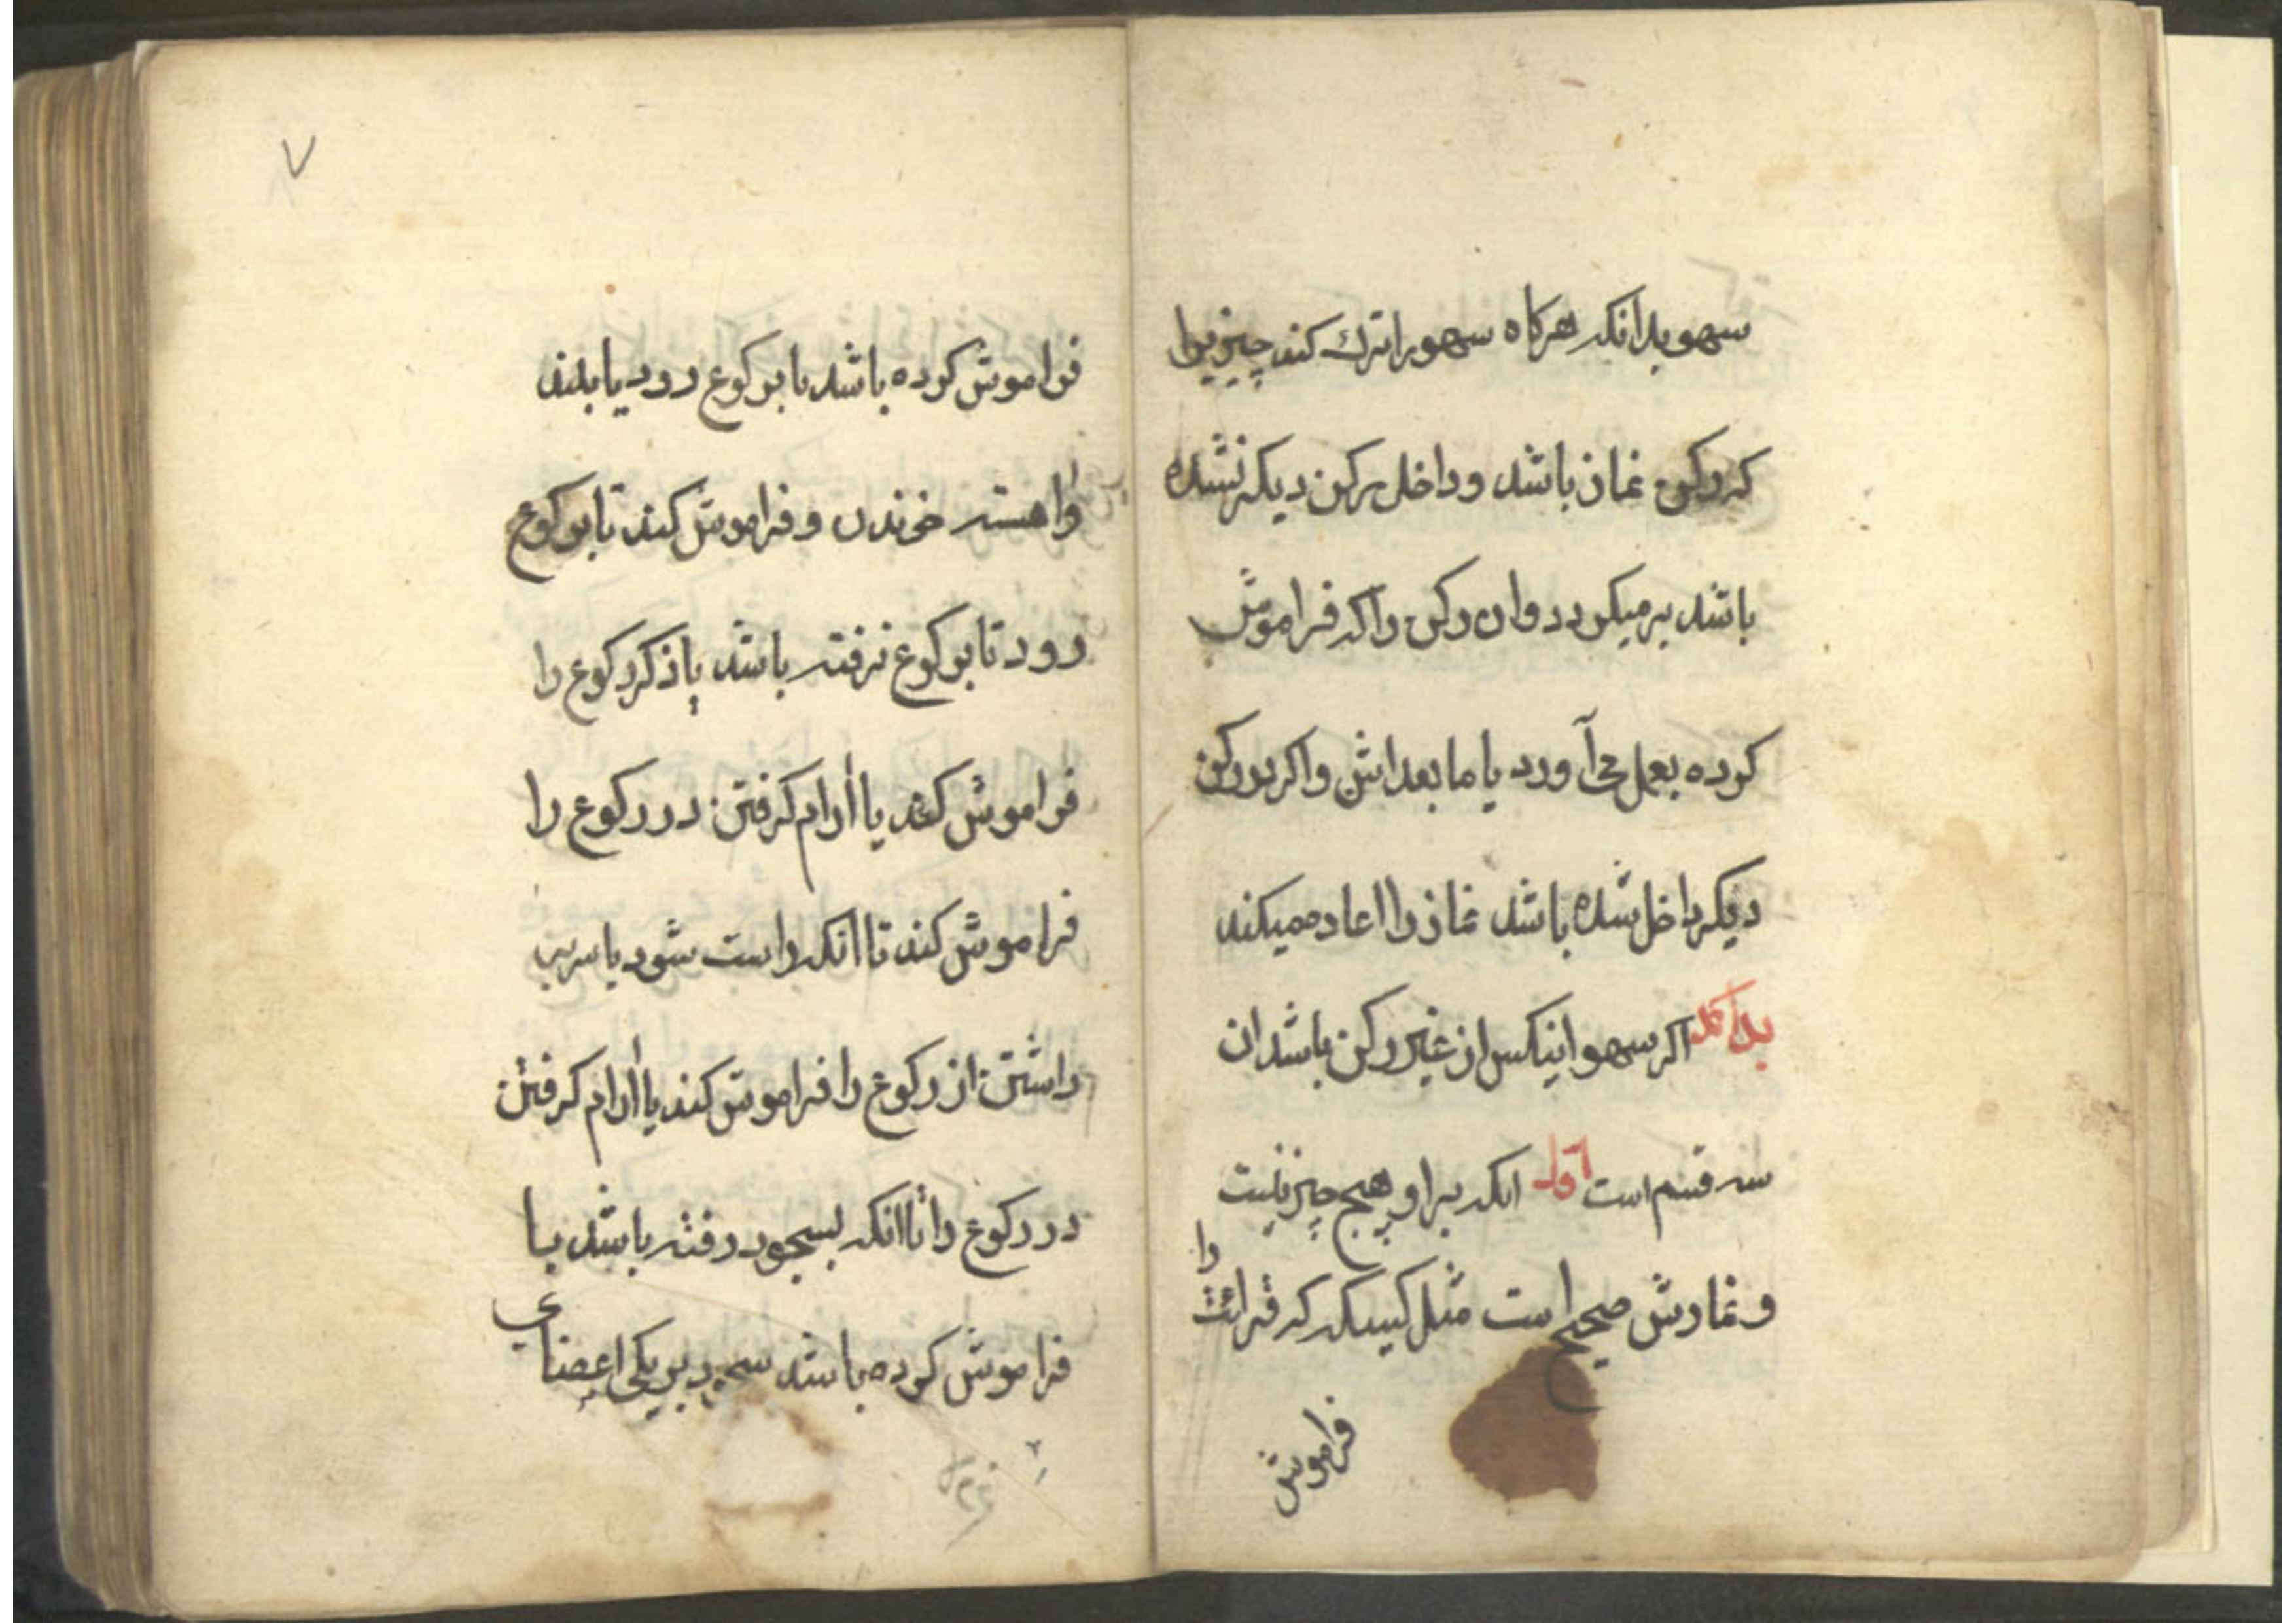 سهو بدانکه هرکاه سهورا ترك کند چیزیرا
که رکن نماز باشد و داخل برکن دیکر نشده
باشد برمیکردد وان رکن را که فراموش
کرده بعمل می آورد یا ما بعد اش و اکر بر رکن
دیکر داخل شده باشد نماز را اعاده میکند
بدانکه اکر سهو اینکس از غیر رکن باشد ان
سه قسم است اول انکه براو هیچ چیز نیست
و نمازش صحیح است مثل که قرائت را
فراموش
۷
فراموش کرده باشد تا برکوع رود یا بلند
واهسته خوندن و فراموش کند تا برکوع
رود تا برکوع نرفته باشد یا ذکر رکوع را
فراموش کند یا ارام کرفتن در رکوع را
فراموش کند تا انکه راست شود یا سر بر
داشتن از رکوع را فراموش کند یا ارام کرفتن
در رکوع را تا انکه بسجود رفته باشد یا
فراموش کرده باشد سجود بر یکی اعضای